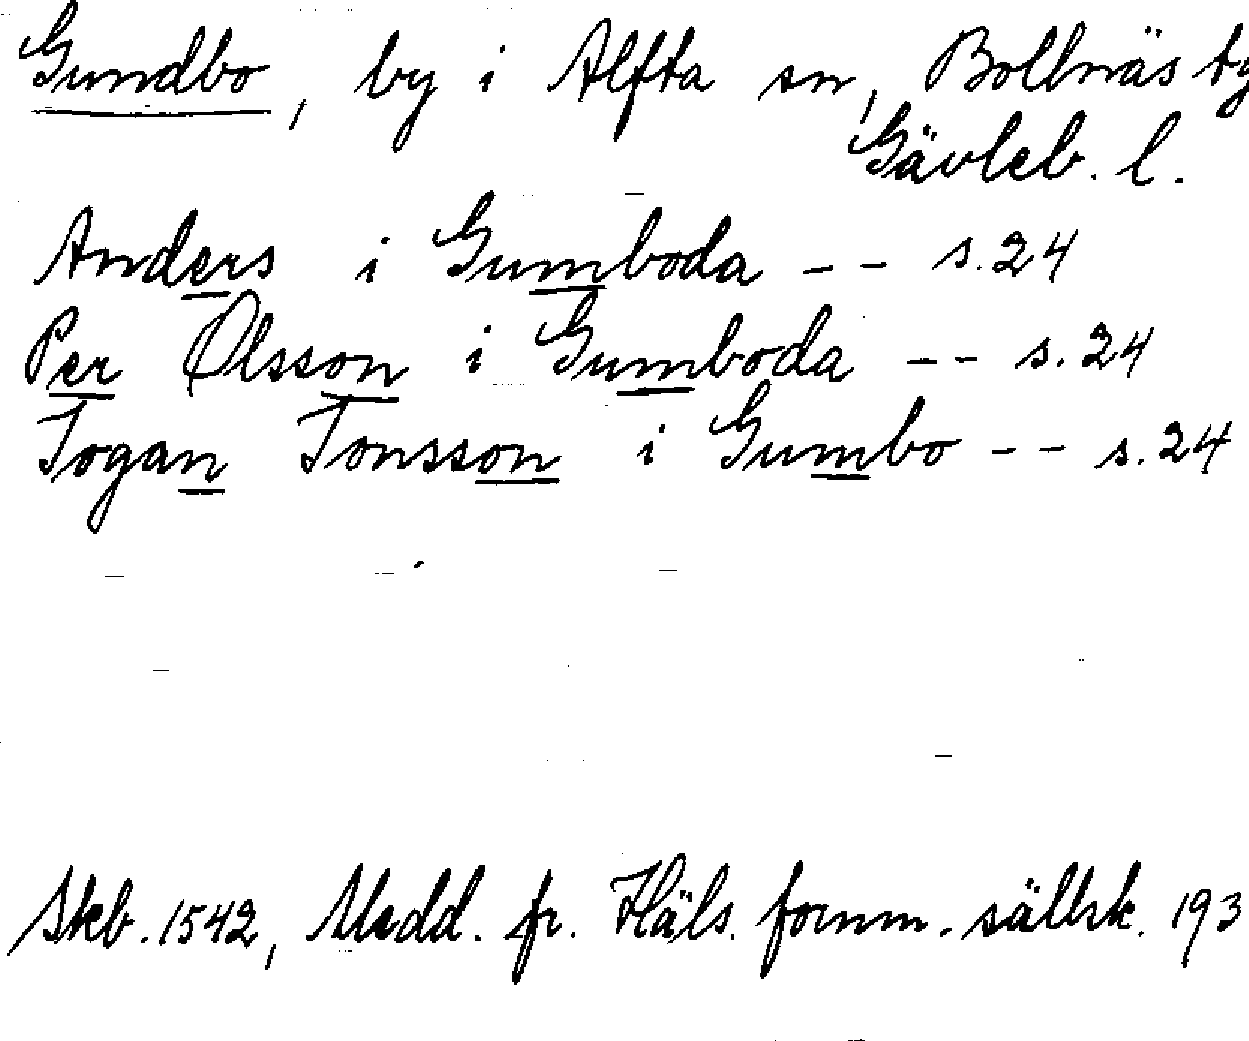 Gundbo, by i Alfta sn, Bollnäs tg
Gävleb. l.
Anders i Gumboda -- s. 24
Per Olsson i Gumboda -- s. 24
Jogan Jonsson i Gumbo -- s. 24
Skb. 1542, Medd. fr. Häls. fornm. sällsk. 193